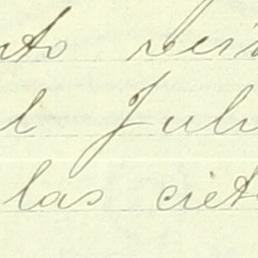 nto vein
l Juli
las ciet